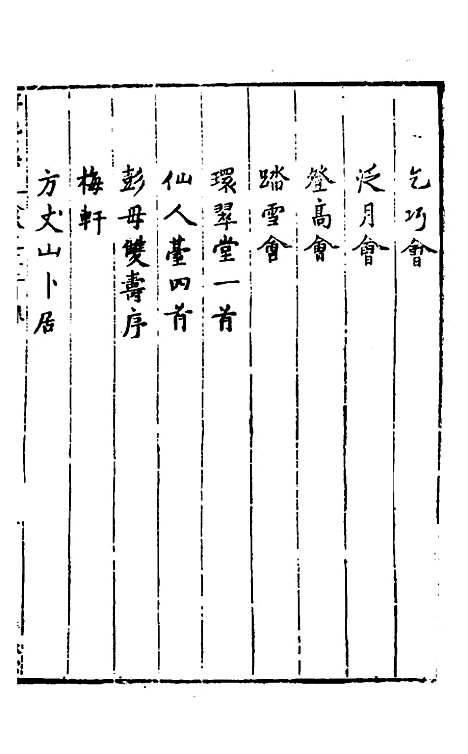 乞巧會
泛月會
登高會
踏雪會
環翠堂一首
仙人臺四首
彭母雙壽序
梅軒
方丈山卜居